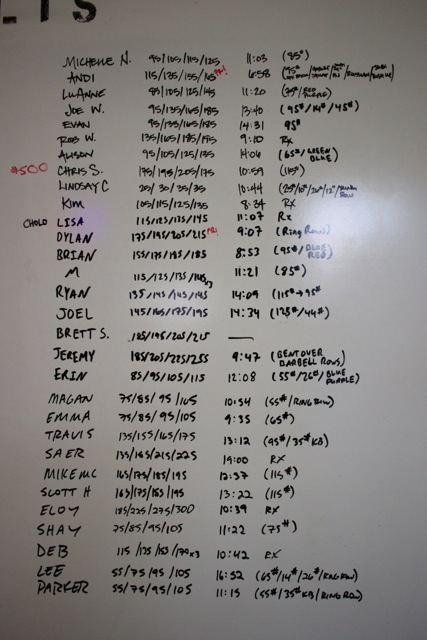 LTS
MICHELLE N. 95/105/115/125 11:03 (85#)
ANDI 115/135/155/165 PR! 6:58
LUANNE 85/105/125/145 11:20
JOE W. 95/135/165/185 13:40 (95#/14#/45#)
EVAN 95/135/165/185 14:31 95#
ROB W. 135/165/185/195 9:10 RX
ALISON 95/105/125/135 (65#/GREEN BLUE)
#500 CHRIS S. 175/195/205/175 10:59 (115#)
LINDSAY C 20/30/35/35 10:44
KIM 105/115/125/135 8:34 RX
CHOLO LISA 115/125/135/145 11:07 Rx
DYLAN 175/195/205/215 PR! 9:07 (Ring Rows)
BRIAN 155/175/195/185 8:53 (95#/BLUE RED)
M 115/125/135/145x3 11:21 (85#)
RYAN 135/145/145/145 14:09 (115#→95#
JOEL 145/165/175/195 14:34 (125#/44#)
BRETT S. 185/195/205/215 —
JEREMY 185/205/225/255 9:47 (BENT OVER BARBELL ROWS)
ERIN 85/95/105/115 12:08 (55#/26#/BLUE PURPLE)
MAGAN 75/85/95/105 10:54 (55#/RING ROW)
EMMA 75/85/95/105 9:35 (65#)
TRAVIS 135/155/165/175 13:12 (95#/35#KB)
SAER 135/165/215/225 19:00 RX
MIKE MC 165/175/185/195 12:37 (115#)
SCOTT H 165/175/185/195 13:22 (115#)
ELOY 185/225/275/300 10:39 RX
SHAY 75/85/95/105 11:22 (75#)
DEB 115/125/155/170x3 10:42 RX
LEE 55/75/95/105 16:52 (65#/14#/26#/RING ROW)
PARKER 55/75/95/105 11:15 (55#/35#KB/RING ROW)